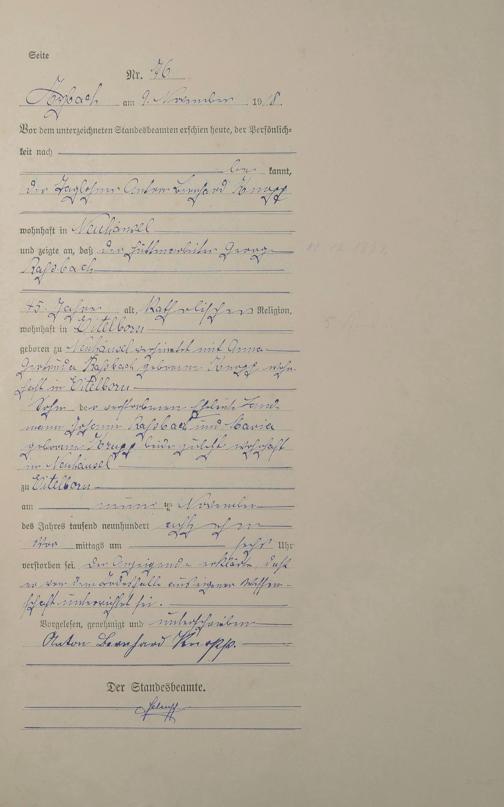 Seite
Nr. 76
Arzbach am 9. November 1918.
Vor dem unterzeichneten Standesbeamten erschien heute, der Persönlich=
keit nach
be kannt,
der Taglöhner Anton Bernhard Knopp
wohnhaft in Neuhäusel
und zeigte an, daß der Hüttenarbeiter Georg
Raßbach
45 Jahre alt, katholischer Religion,
wohnhaft in Eitelborn
geboren zu Neuhäusel verheiratet mit Anna
Gertruda Raßbach geborenen Knopp wohn-
haft in Eitelborn
Sohn der verstorbenen Eheleute
Johann Raßbach und Maria
geborene Knopp beide zuletzt wohnhaft
in Neuhäusel
zu Eitelborn
am neun ten November
des Jahres tausend neunhundert acht zehn
Vor mittags um sechs Uhr
verstorben sei. Der Anzeigende erklärte, daß
er von dem Todesfalle aus eigener Wissen-
schaft unterrichtet sei.
Vorgelesen, genehmigt und unterschrieben
Anton Bernhard Knopp.
Der Standesbeamte.